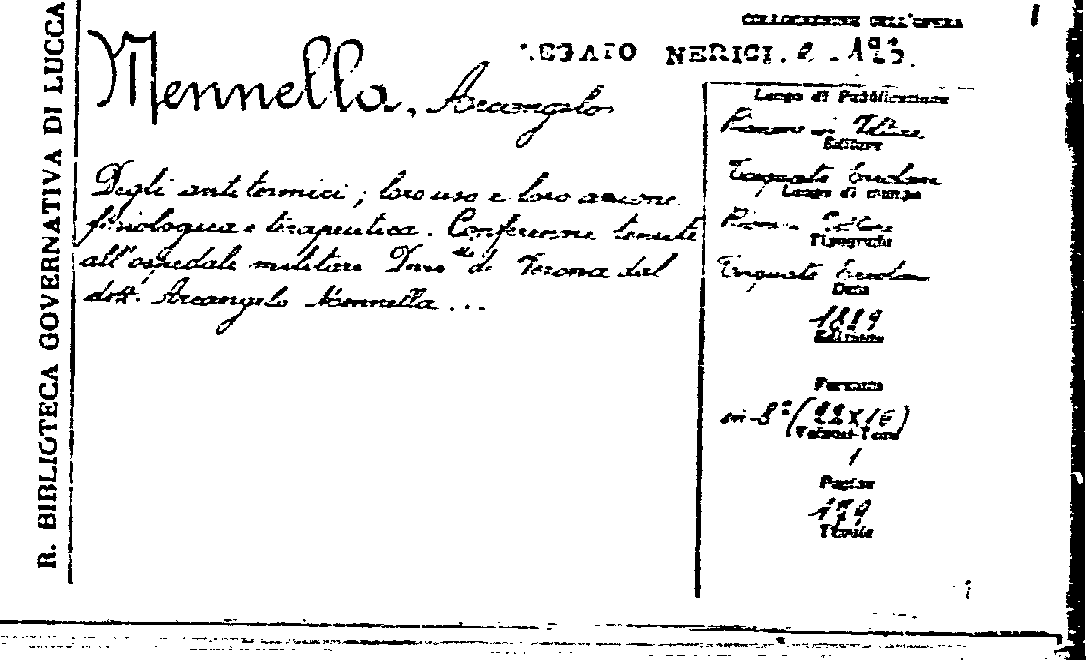 R. BIBLIOTECA GOVERNATIVA DI LUCCA
COLLOCAZIONE DELL'OPERA
NERICI. e. 193.
Mennella, Arcangelo
Degli antitermici; loro uso e loro azione
fisiologica e terapeutica. Conferenze tenute
all'ospedale militare di Verona dal
dott. Arcangelo Mennella ...
Luogo di Pubblicazione
Editore
Luogo di stampa
Tipografia
Torquato
Data
1889
Edizione
Formato
in-8° (22x16)
1
Pagine
179
Tavole